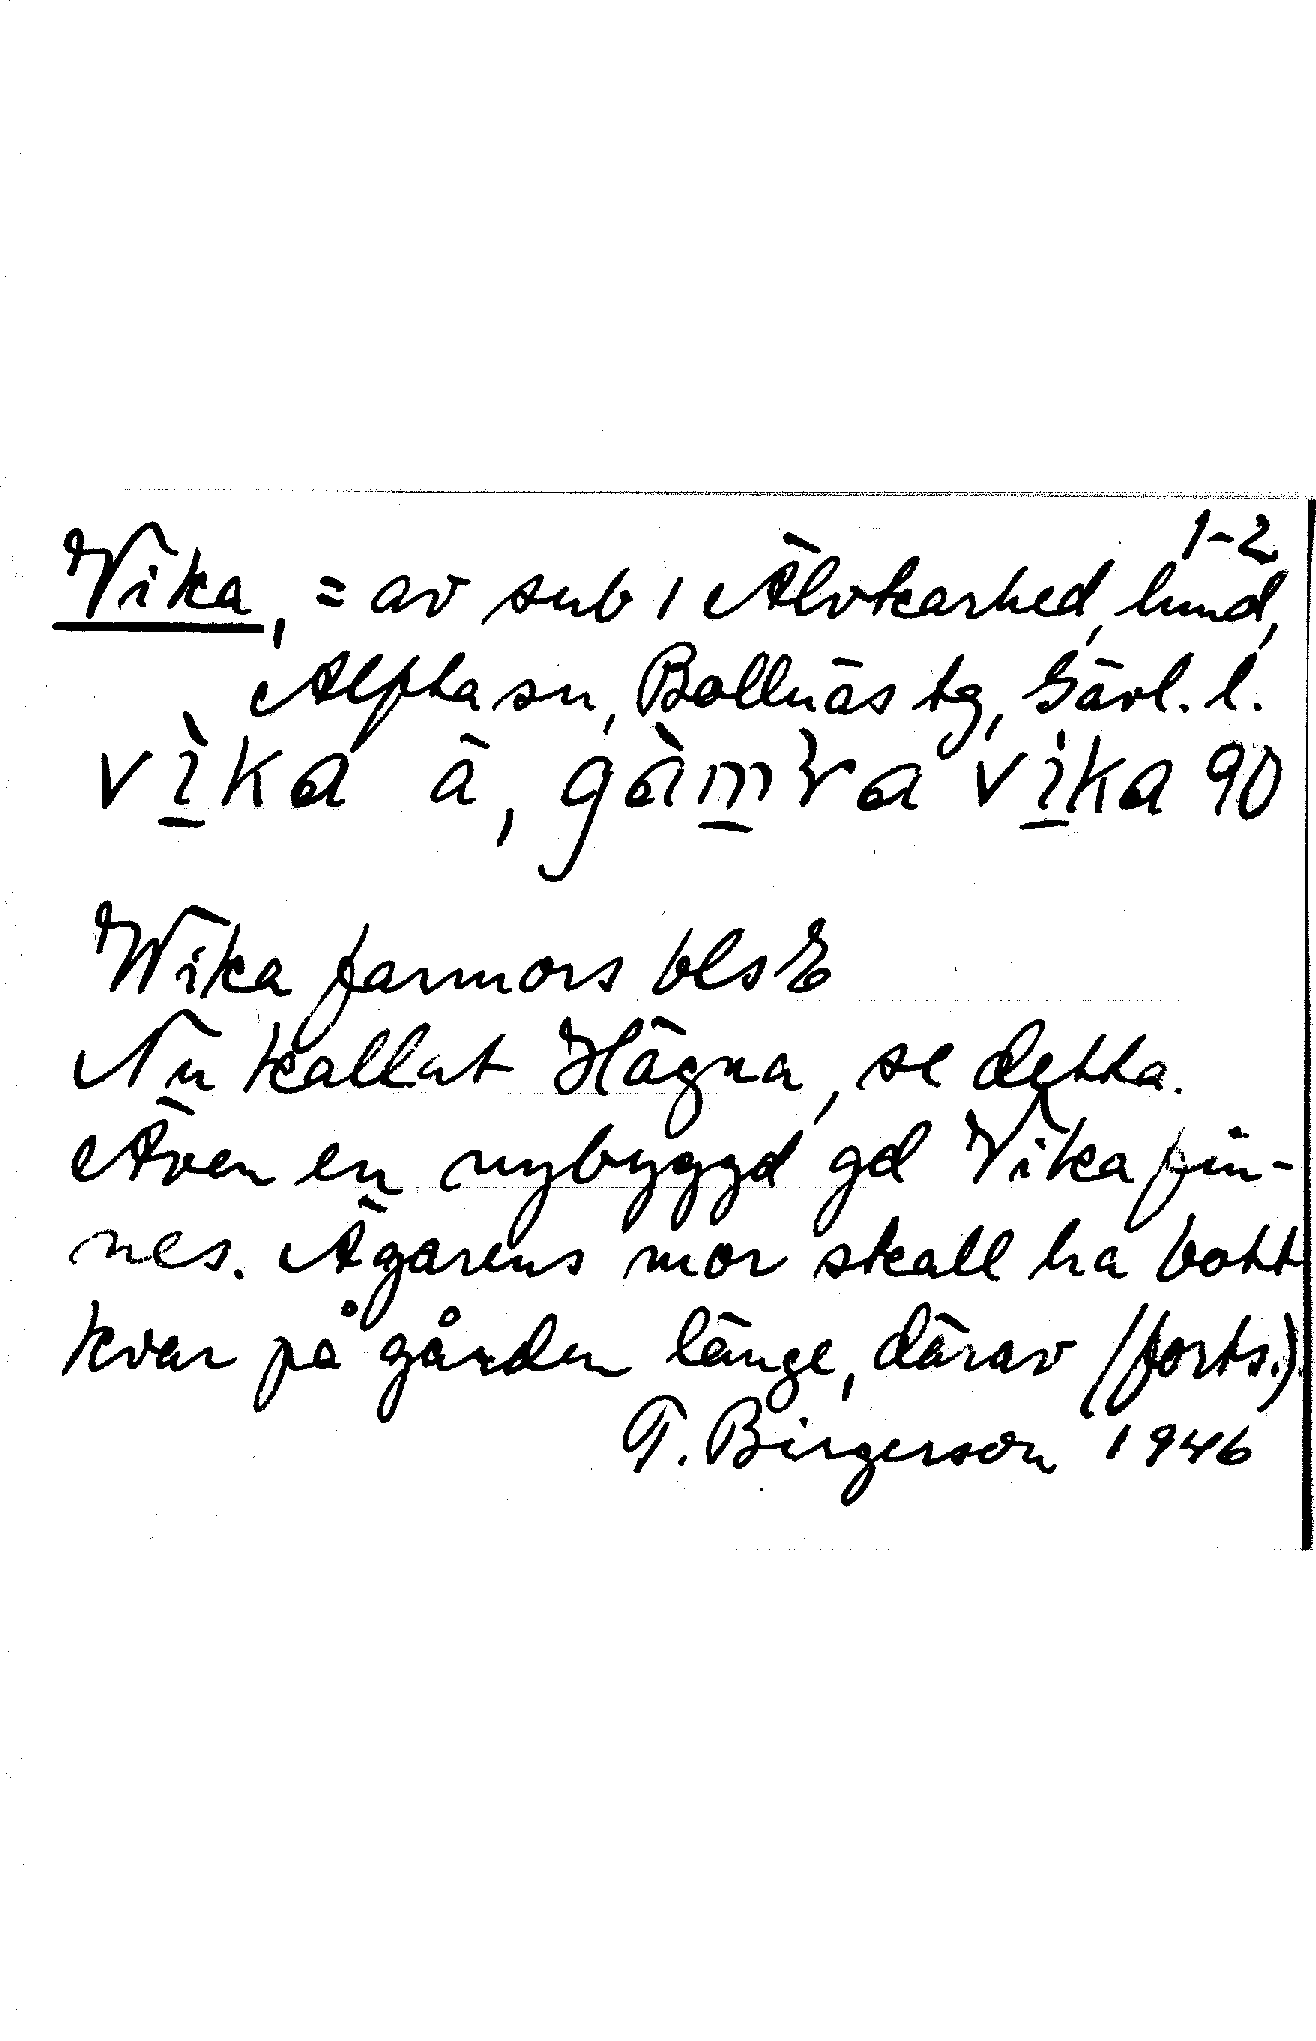 1-2
Vika, = av sub 1 Älvkarhed, lund,
Alfta sn, Bollnäs tg, Gävl. l.
vìka ä, gàmɽa vìka 90
Wika farmors bls E
Nu kallat Hägna, se detta.
Även en nybyggd gd Vika fin-
nes. Ägarens mor skall ha bott
kvar på gården länge, därav (forts.)
T. Birgerson 1946